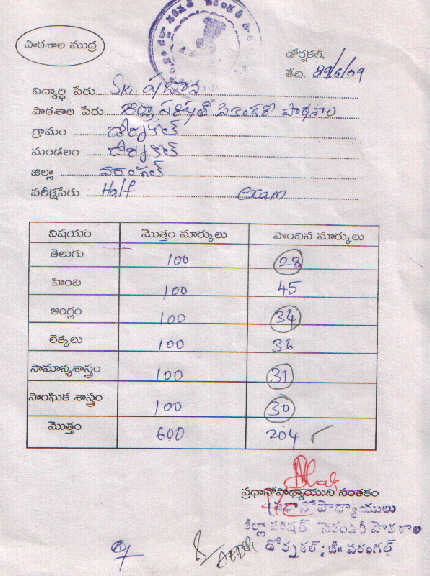 పాఠశాల ముద్ర
డోర్నకల్,
తేది.
విద్యార్థి పేరు
పాఠశాల పేరు జిల్లా పరిషత్ సెకండరీ పాఠశాల
గ్రామం డోర్నకల్
మండలం డోర్నకల్
జిల్లా వరంగల్
పరీక్షపేరు Half exam
విషయం మొత్తం మార్కులు పొందిన మార్కులు
తెలుగు 100 28
హింది 100 45
ఆంగ్లం 100 34
లెక్కలు 100
సామాన్యశాస్త్రం 100 31
సాంఘిక శాస్త్రం 100 30
మొత్తం 600 204
ప్రధానోపాధ్యాయుని సంతకం
ప్రధానోపాధ్యాయులు
జిల్లా పరిషత్ సెకండరీ పాఠశాల
డోర్నకల్, జి॥ వరంగల్